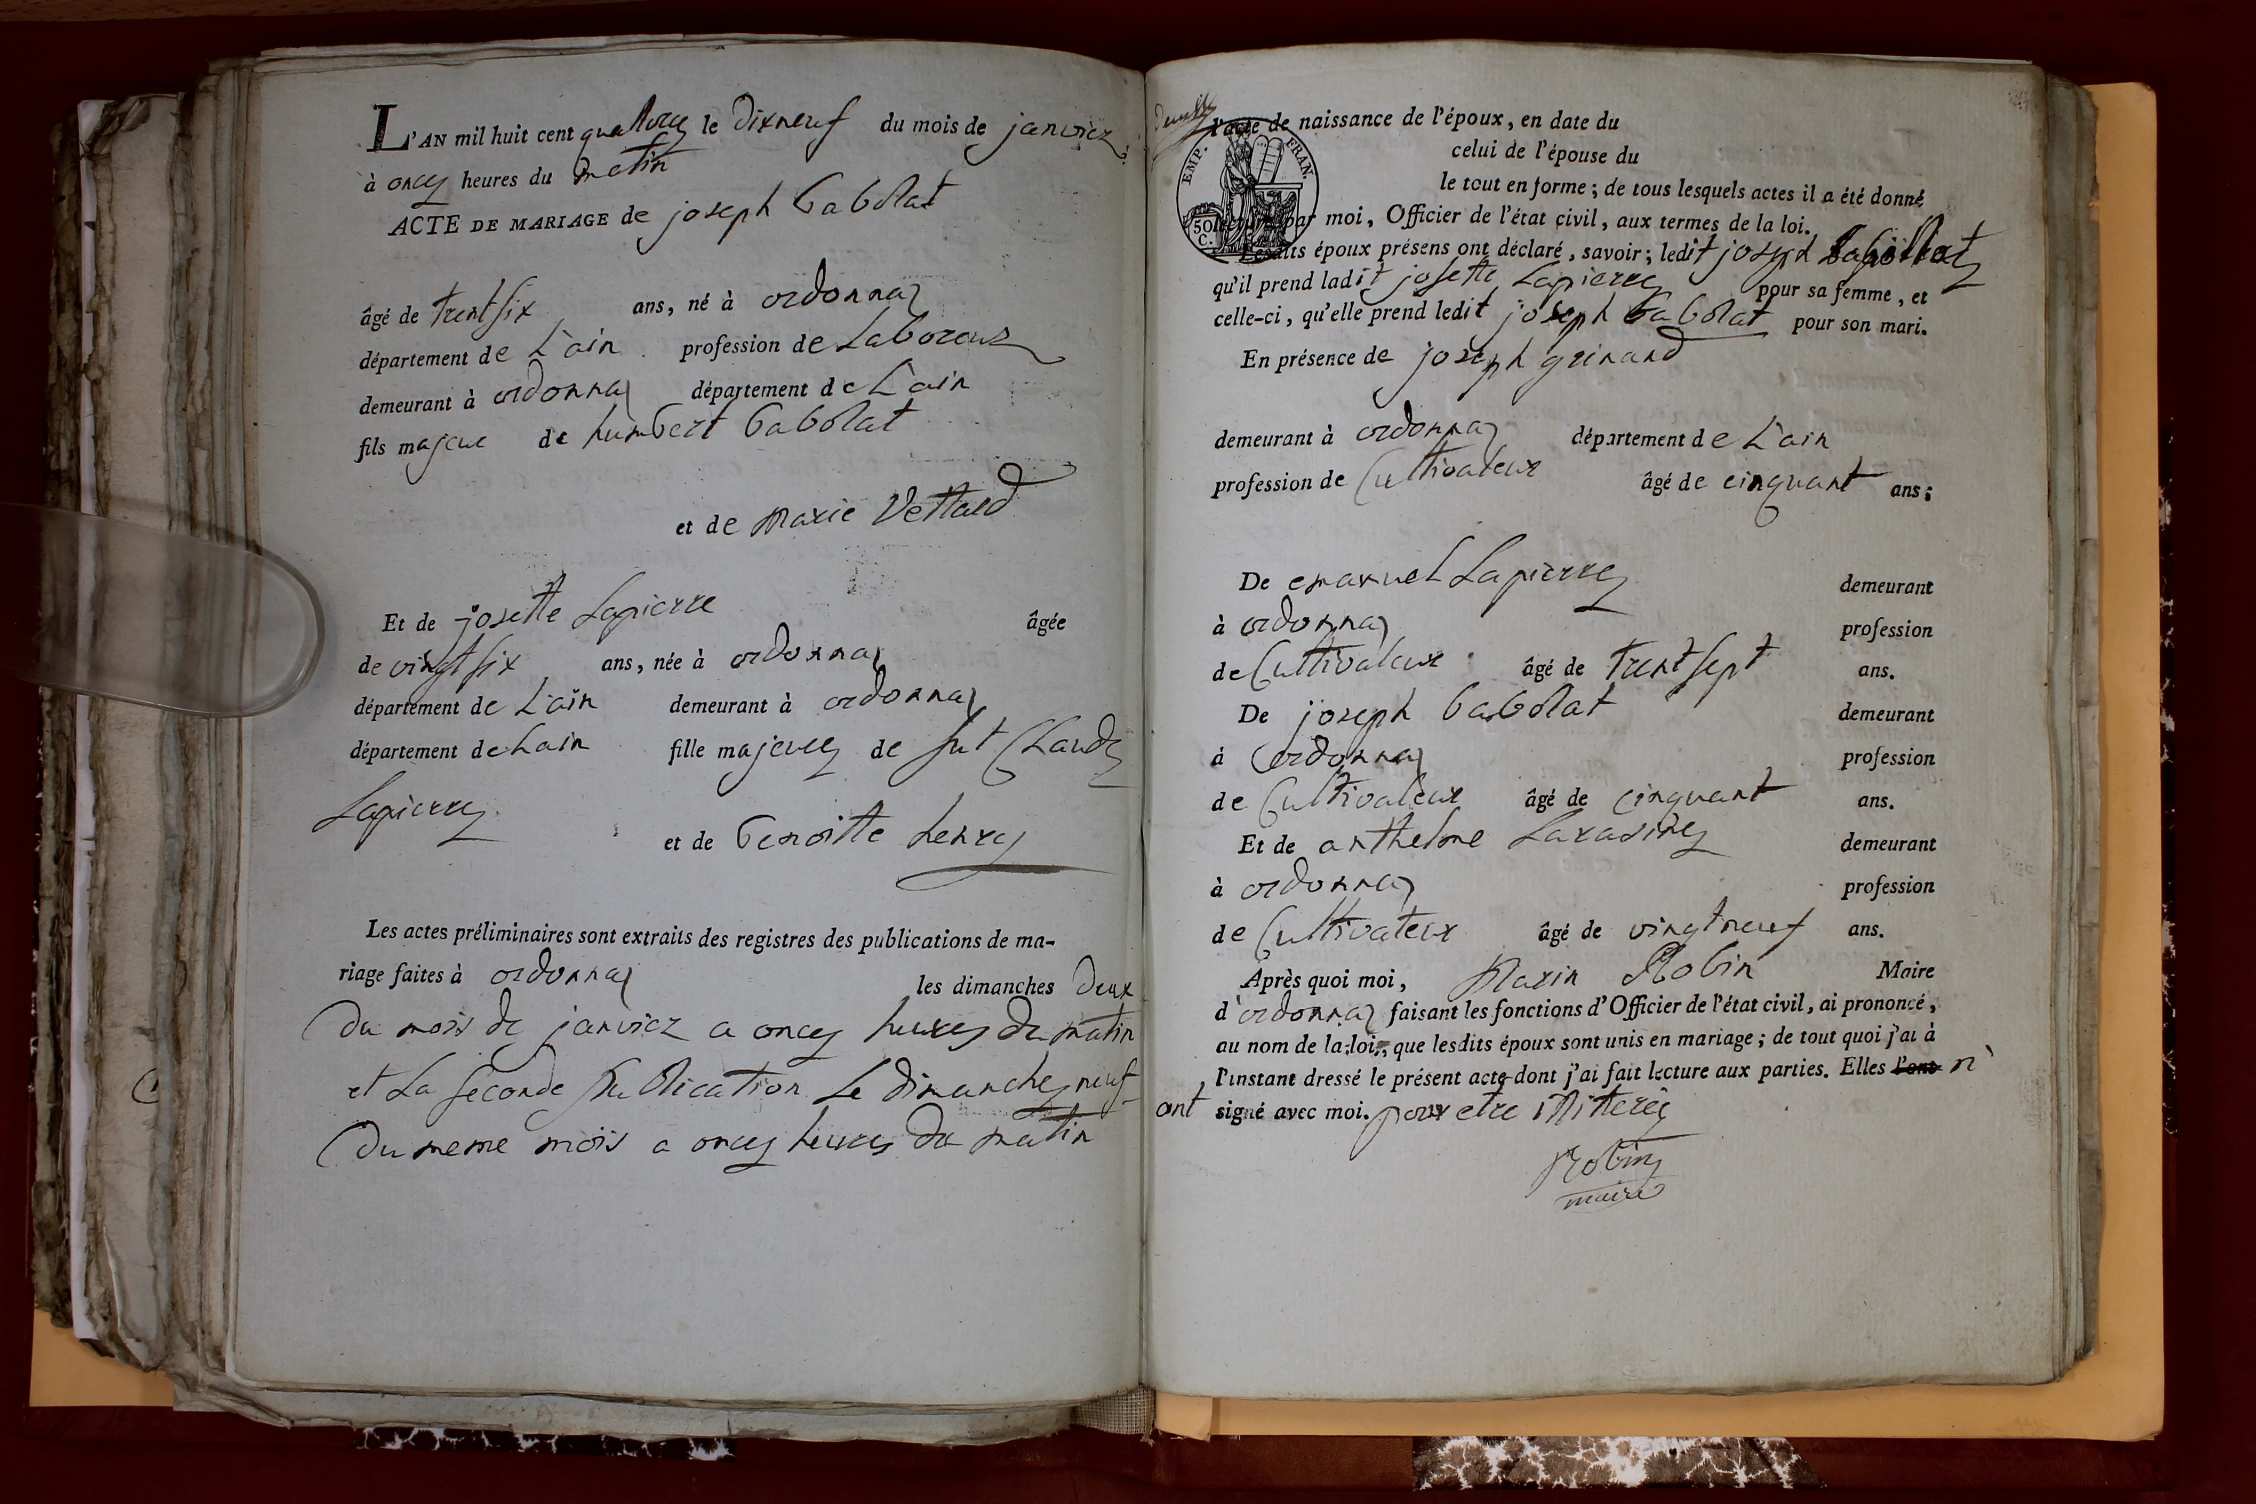 L'AN mil huit cent quattorze le dixneuf du mois de janvier
à onze heures du matin
ACTE DE MARIAGE de joseph babolat
âgé de trent six ans, né à ordonnaz
département de L'ain profession de Laboreur
demeurant à ordonnaz département de L'ain
fils majeur de humbert babolat
et de marie Vettard
Et de josette Lapierre âgée
de vingt six ans, née à ordonnaz
département de L'ain demeurant à ordonnaz
département de Lain fille majeure de fut Claude
Lapierre
et de benoitte henry
Les actes préliminaires sont extraits des registres des publications de ma-
riage faites à ordonnaz les dimanches deux
du mois de janvier a onze heures du matin
et La seconde publication Le dimanche neuf
du meme mois a onze heures du matin
l'acte de naissance de l'époux, en date du
celui de l'épouse du
le tout en forme; de tous lesquels actes il a été donné
EMP. FRAN.
50 C.
par moi, Officier de l'état civil, aux termes de la loi.
Lesdits époux présens ont déclaré, savoir; ledit joseph babollat
qu'il prend ladit josette Lapierre pour sa femme, et
celle-ci, qu'elle prend ledit joseph babolat pour son mari.
En présence de joseph grinand
demeurant à ordonnaz département de L'ain
profession de Cultivateur âgé de cinquant ans;
De emanuel Lapierre demeurant
à ordonnaz profession
de Cultivateur âgé de trent sept ans.
De joseph babolat demeurant
à ordonnaz profession
de Cultivateur âgé de cinquant ans.
Et de anthelme Larasine demeurant
à ordonnaz profession
de Cultivateur âgé de vingt neuf ans.
Après quoi moi, Marin Robin Maire
d'ordonnaz faisant les fonctions d'Officier de l'état civil, ai prononcé,
au nom de la loi, que lesdits époux sont unis en mariage; de tout quoi j'ai à
l'instant dressé le présent acte dont j'ai fait lecture aux parties. Elles l'ont n'
ont signé avec moi. pour etre illiterée
Robin
maire